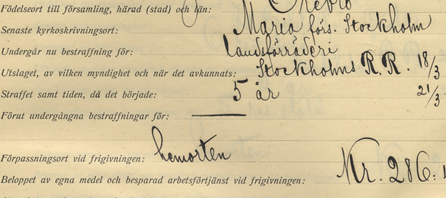 Födelseort till församling, härad (stad) och län: Örebro
Senaste kyrkoskrivningsort: Maria förs. Stockholm
Undergår nu bestraffning för: landsförräderi
Utslaget, av vilken myndighet och när det avkunnats: Stockholms R.R. 18/3
Straffet samt tiden, då det började: 5 år 21/3
Förut undergångna bestraffningar för: —
Förpassningsort vid frigivningen: hemorten
Beloppet av egna medel och besparad arbetsförtjänst vid frigivningen: Kr. 286.1